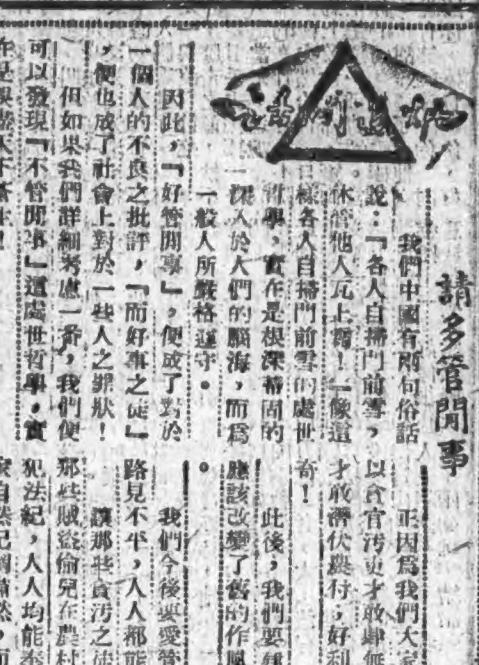 請多管閒事
我們中國有兩句俗話
說：『各人自掃門前雪，
休管他人瓦上霜！』像這
樣各人自掃門前雪的處世
哲學，實在是根深蒂固的
深入於人們的腦海，而爲
一般人所嚴格遵守。
因此，『好管閒事』，便成了對於
一個人的不良之批評，『而好事之徒』
，便也成了社會上對於一些人之罪狀！
但如果我們詳細考慮一番，我們便
可以發現『不管閒事』這處世哲學，實
正因爲我們大家
以貪官污吏才敢肆無
才敢潛伏農村，好利
奇！
此後，我們要
應該改變了舊的作風
。
我們今後要愛管
路見不平，人人都能
讓那些貪污之徒
那些賊盜偷兒在農村
犯法紀，人人均能